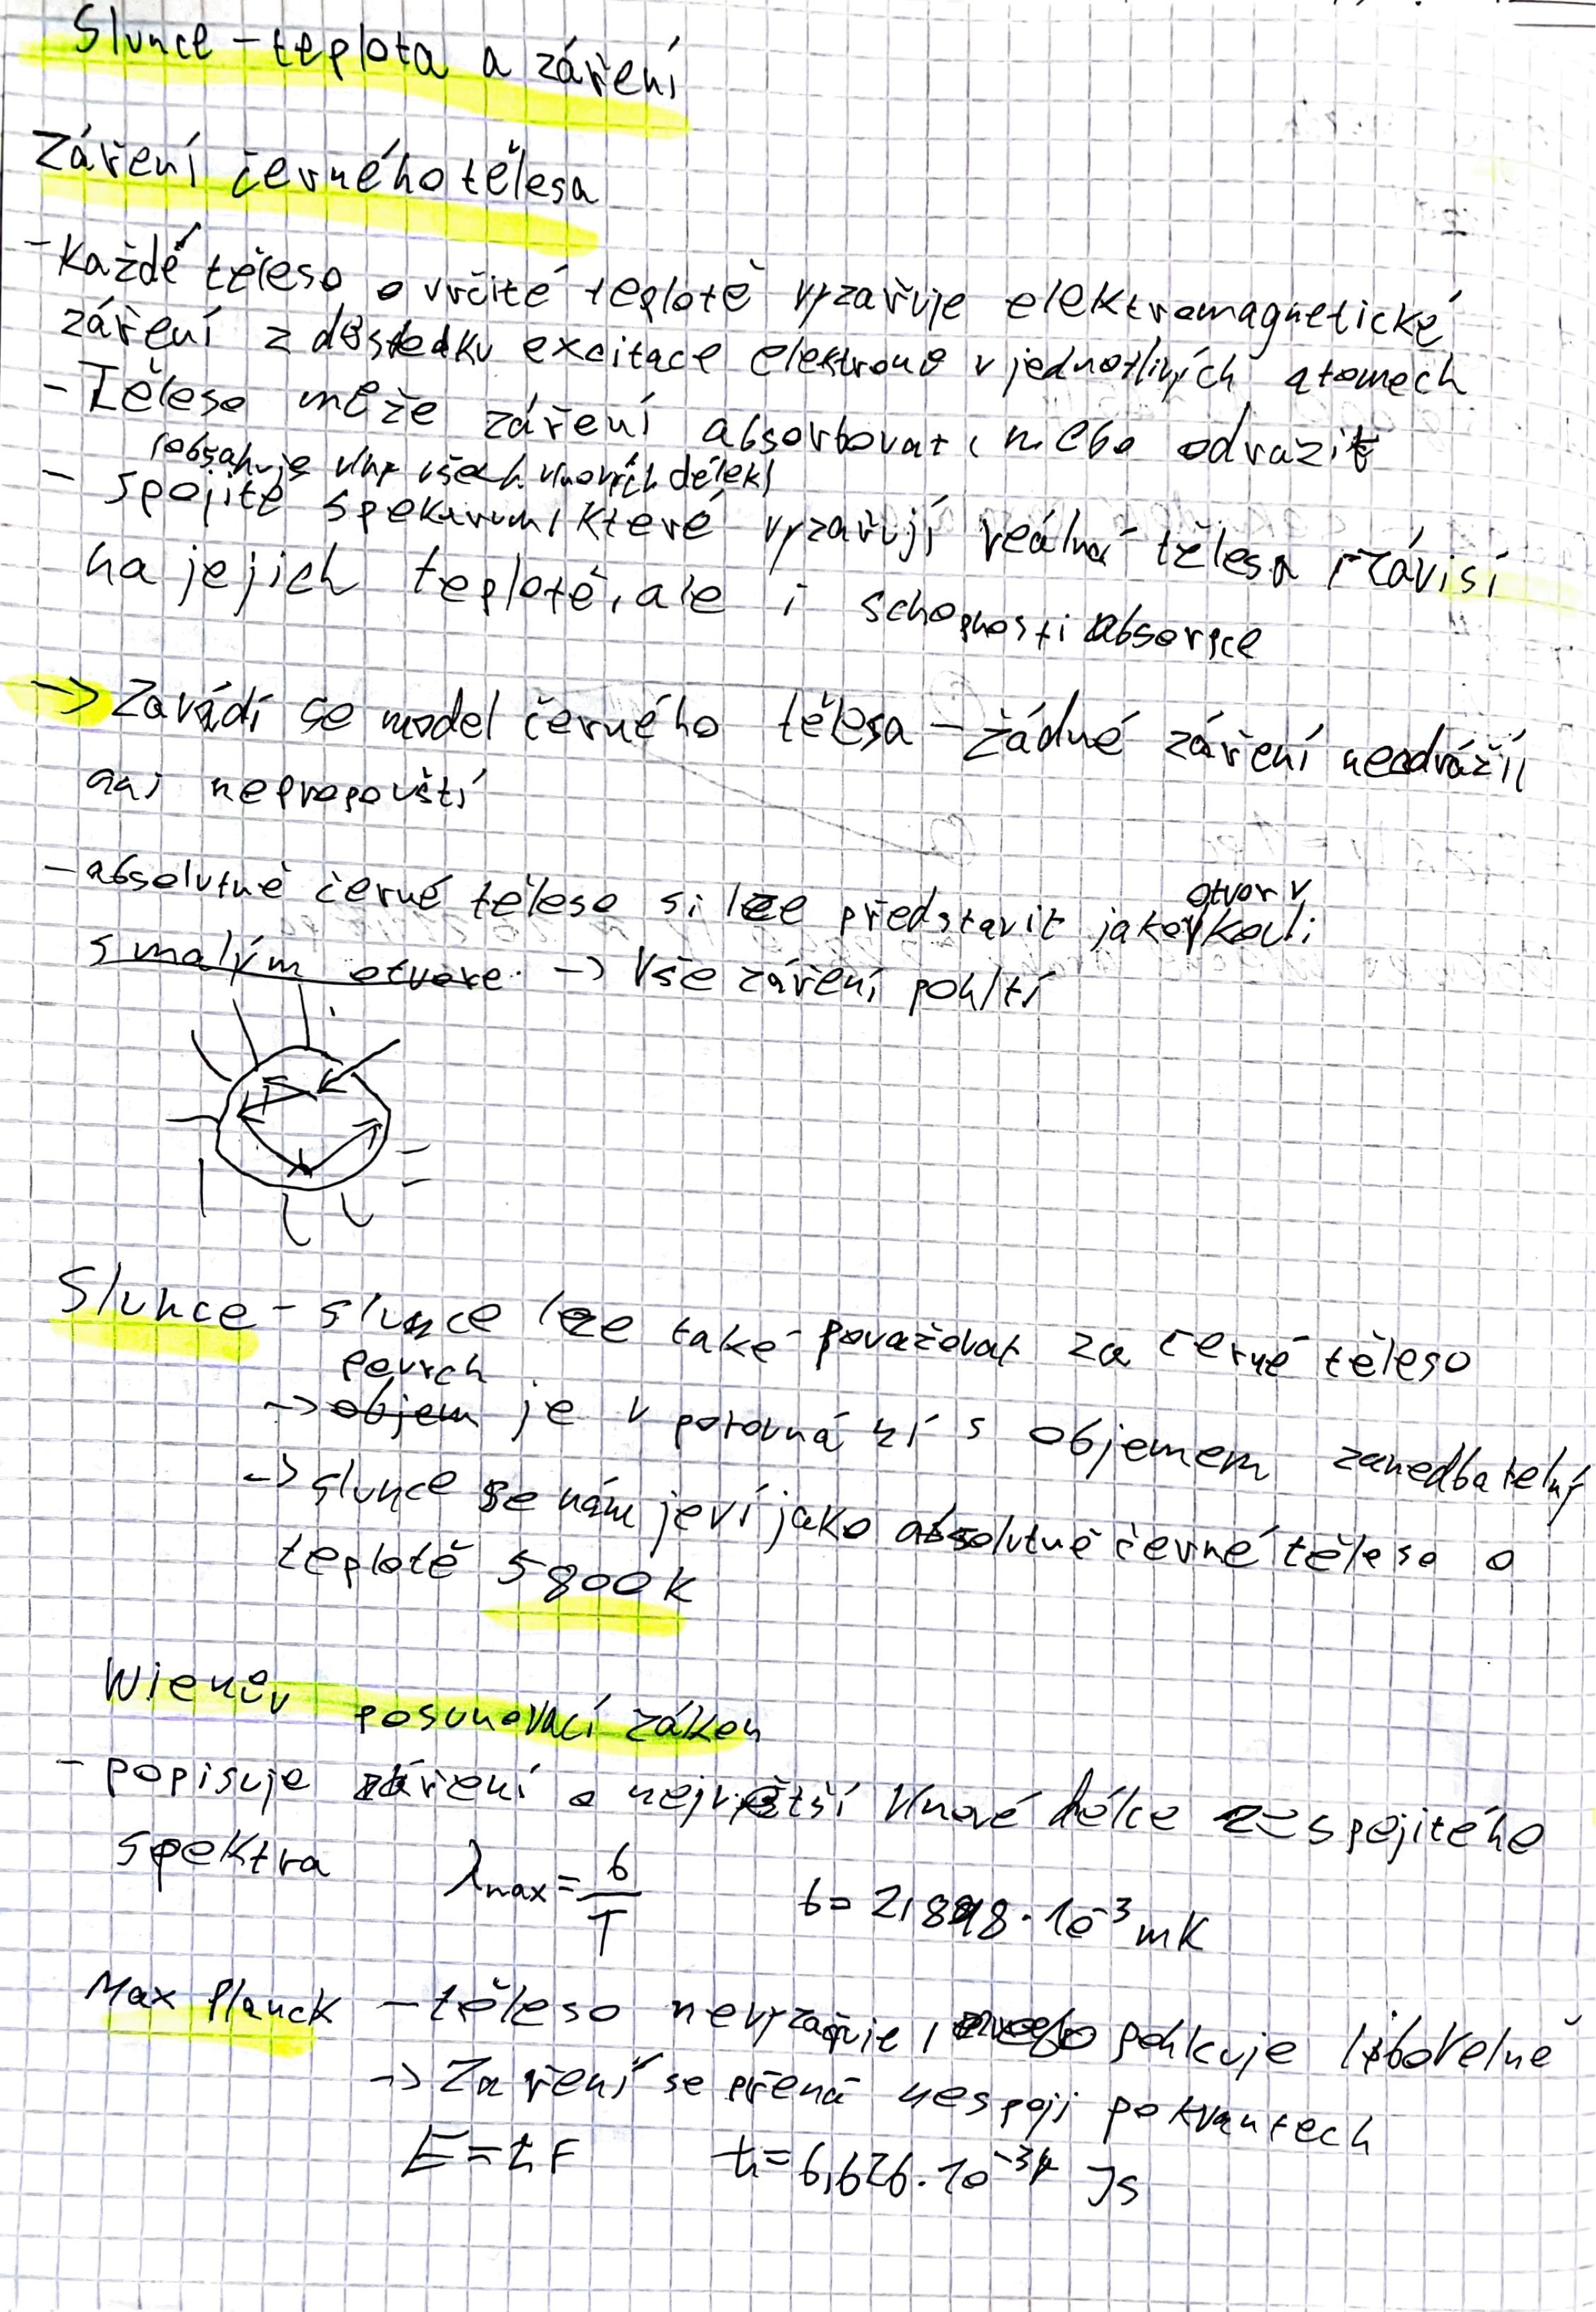 Slunce - teplota a záření
Záření černého tělesa
- Každé těleso o určité teplotě vyzařuje elektromagnetické
záření z důsledku excitace elektronů v jednotlivých atomech
- Těleso může záření absorbovat, nebo odrazit
(obsahuje vlny všech vlnových délek)
- spojité spektrum, které vyzařují reálná tělesa závisí
na jejich teplotě, ale i schopnosti absorpce
-> Zavádí se model černého tělesa - žádné záření neodráží
ani nepropouští
- absolutně černé těleso si lze představit jako otvor v kouli
s malým otvore. -> Vše záření pohltí
Slunce - slunce lze také považovat za černé těleso
povrch
-> objem je v porovnání s objemem zanedbatelný
-> slunce se nám jeví jako absolutně černé těleso o
teplotě 5800K
Wienův posunovací zákon
- popisuje záření o největší vlnové délce ze spojitého
spektra λmax = b/T b = 2,898·10⁻³ mK
Max Planck - těleso nevyzařuje, pohlcuje libovolně
-> Záření se přená nespoji po kvantech
E = ħf ħ = 6,626·10⁻³⁴ Js